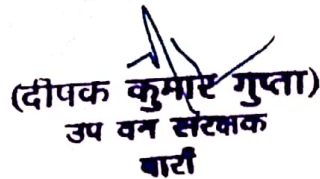 (दीपक कुमार गुप्ता)
उप वन संरक्षक
बारां